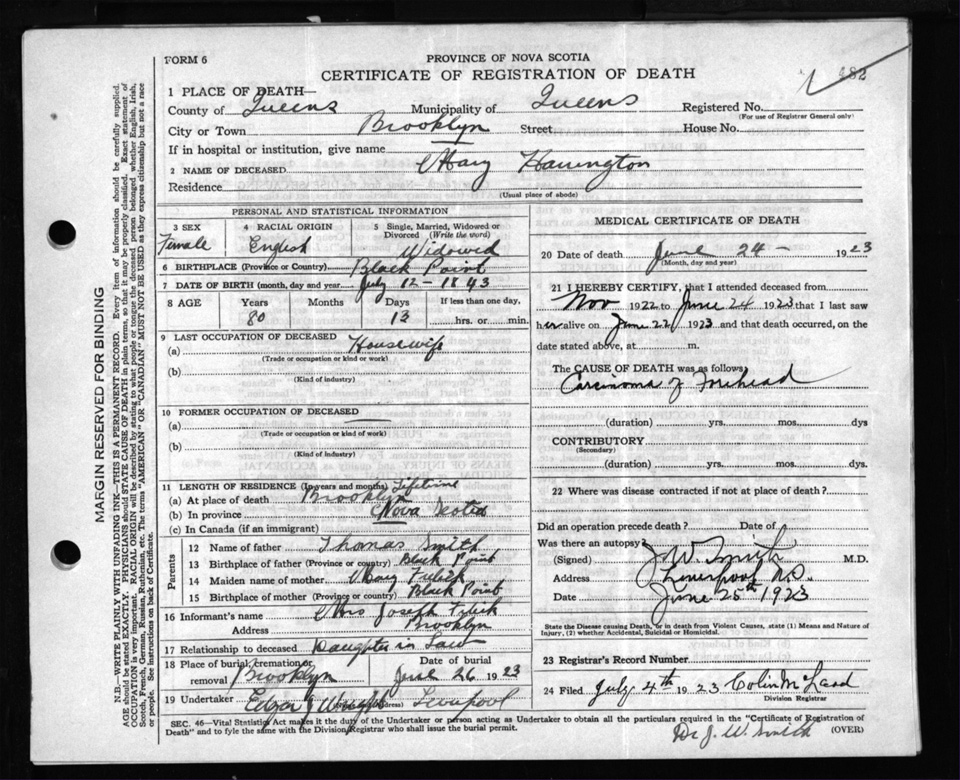 FORM 6
PROVINCE OF NOVA SCOTIA
CERTIFICATE OF REGISTRATION OF DEATH
482
1 PLACE OF DEATH—
County of Queens Municipality of Queens Registered No.
(For use of Registrar General only)
City or Town Brooklyn Street House No.
If in hospital or institution, give name
2 NAME OF DECEASED Mary Harrington
Residence
(Usual place of abode)
PERSONAL AND STATISTICAL INFORMATION
3 SEX 4 RACIAL ORIGIN 5 Single, Married, Widowed or Divorced (Write the word)
Female English Widowed
6 BIRTHPLACE (Province or Country) Black Point
7 DATE OF BIRTH (month, day and year) July 12 - 1843
8 AGE Years Months Days If less than one day,
80 13 hrs. or min.
9 LAST OCCUPATION OF DECEASED Housewife
(a)
(Trade or occupation or kind or work)
(b)
(Kind of industry)
10 FORMER OCCUPATION OF DECEASED
(a)
(Trade or occupation or kind of work)
(b)
(Kind of industry)
11 LENGTH OF RESIDENCE (In years and months) Lifetime
(a) At place of death Brooklyn
(b) In province Nova Scotia
(c) In Canada (if an immigrant)
Parents
12 Name of father Thomas Smith
13 Birthplace of father (Province or country) Black Point
14 Maiden name of mother Mary
15 Birthplace of mother (Province or country) Black Point
16 Informant's name Mrs Joseph
Address Brooklyn
17 Relationship to deceased Daughter in Law
18 Place of burial, cremation or removal Brooklyn Date of burial June 26 1923
19 Undertaker Edgar J Wright (Address) Liverpool
MEDICAL CERTIFICATE OF DEATH
20 Date of death June 24 - 1923
(Month, day and year)
21 I HEREBY CERTIFY, that I attended deceased from
Nov 1922 to June 24 1923 that I last saw
her alive on June 22 1923 and that death occurred, on
date stated above, at m.
The CAUSE OF DEATH was as follows:
Carcinoma of Forehead
(duration) yrs. mos. dys
CONTRIBUTORY
(Secondary)
(duration) yrs. mos. dys.
22 Where was disease contracted if not at place of death?
Did an operation precede death? Date of
Was there an autopsy?
(Signed) J. W. Smith M.D.
Address Liverpool N.S.
Date June 25th 1923
State the Disease causing Death, or in death from Violent Causes, state (1) Means and Nature of
Injury, (2) whether Accidental, Suicidal or Homicidal.
23 Registrar's Record Number
24 Filed July 4th 1923
Division Registrar
SEC. 46—Vital Statistics Act makes it the duty of the Undertaker or person acting as Undertaker to obtain all the particulars required in the "Certificate of Registration of
Death" and to fyle the same with the Division Registrar who shall issue the burial permit.
Dr J. W. Smith
(OVER)
MARGIN RESERVED FOR BINDING
N.B. WRITE PLAINLY WITH UNFADING INK—THIS IS A PERMANENT RECORD. Every item of information should be carefully supplied.
AGE should be stated EXACTLY. PHYSICIANS should STATE CAUSE OF DEATH in plain terms, so that it may be properly classified. Exact statement of
OCCUPATION is very important. RACIAL ORIGIN will be described by stating to what people or tongue the deceased person belonged, whether English, Irish,
Scotch, French, German, Russian, Ruthenian, etc. The terms "AMERICAN" OR "CANADIAN" MUST NOT BE USED as they express citizenship but not a race
or people. See instructions on back of Certificate.